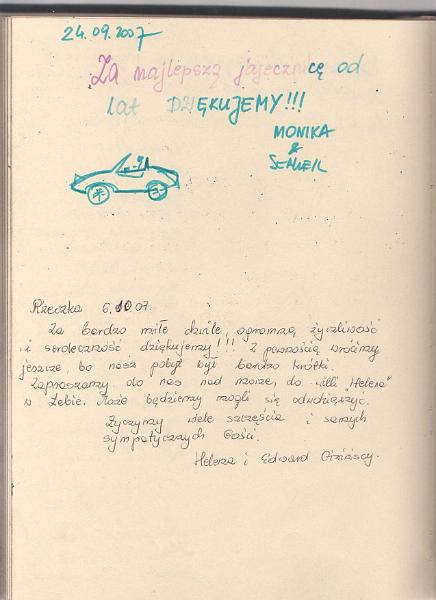 24.09.2007
Za najlepszą jajecznicę od
lat DZIĘKUJEMY!!!
MONIKA
&
Rzeczka 6.10 07.
Za bardzo miłe chwile, ogromną życzliwość
i serdeczność dziękujemy!!! Z pewnością wrócimy
jeszcze, bo nasz pobyt był bardzo krótki.
Zapraszamy do nas nad morze, do willi "Helena"
w Łebie. Może będziemy mogli się odwdzięczyć.
Życzymy wiele szczęścia i samych
sympatycznych Gości.
Helena i Edward